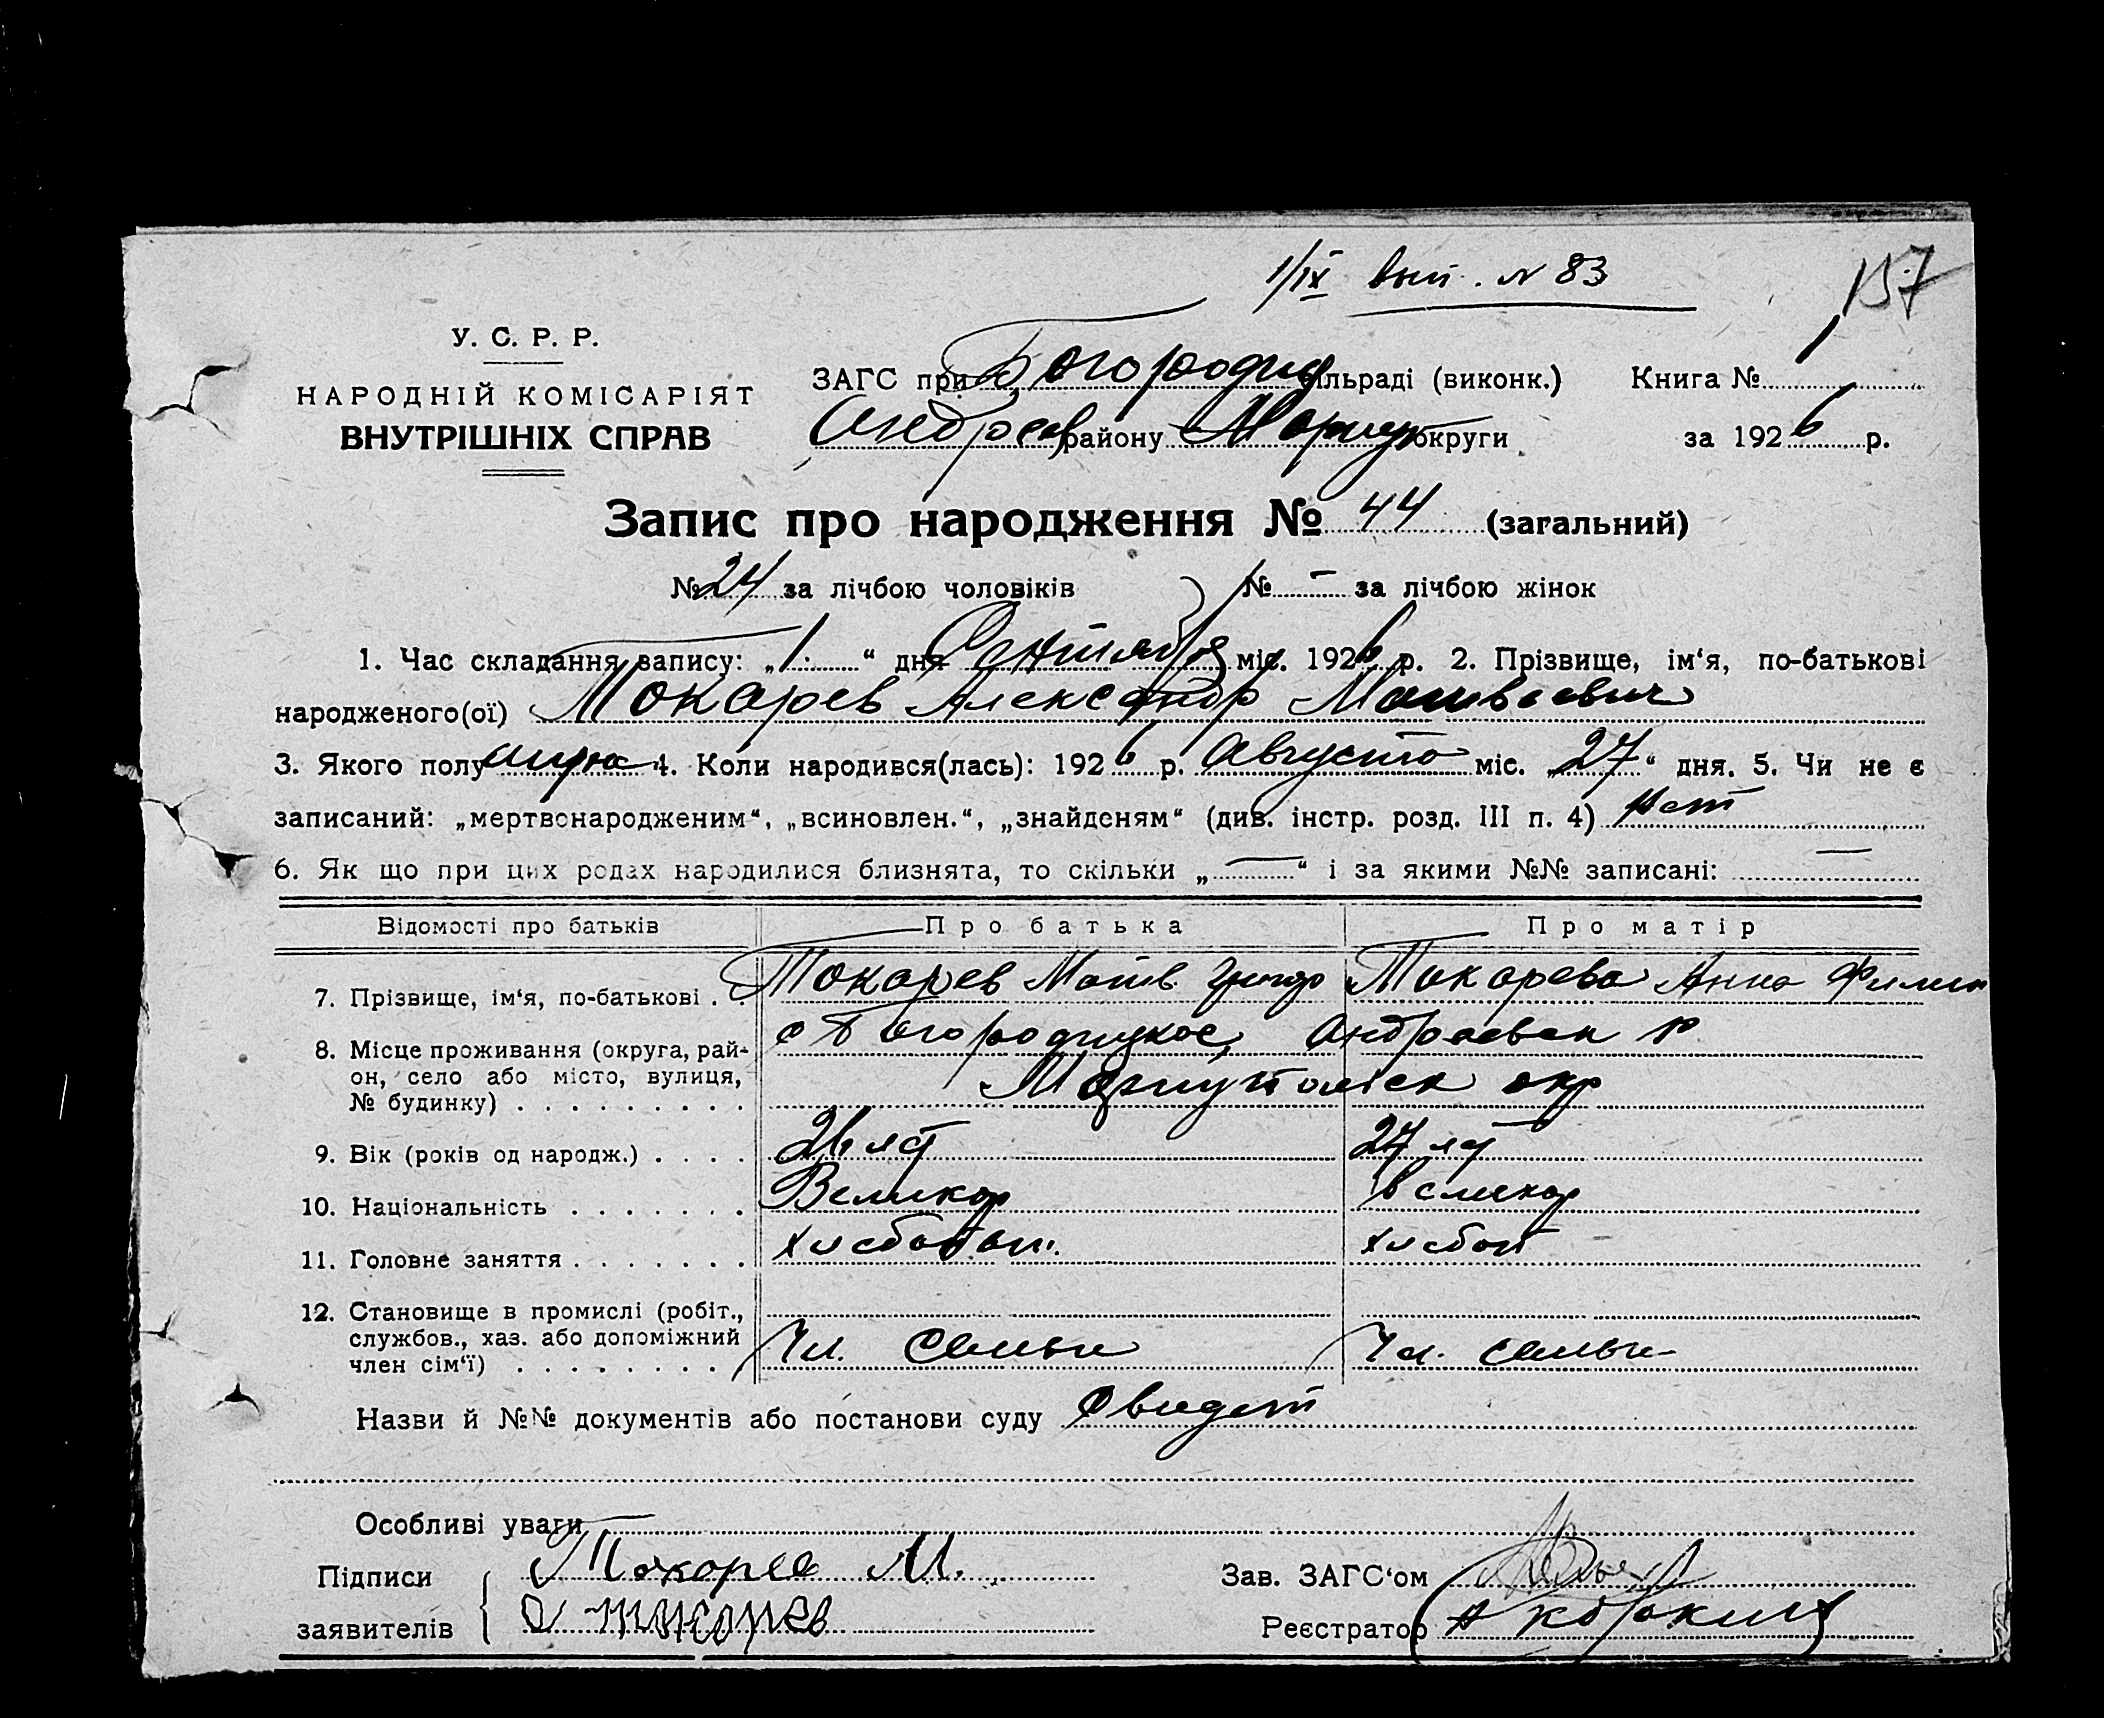 1/IX вып. № 83
157
У. С. Р. Р.
НАРОДНІЙ КОМІСАРІЯТ
ВНУТРІШНІХ СПРАВ
ЗАГС при Богородиц сільраді (виконк.) Книга № 1
Андреев району Мариуп округи за 1926 р.
Запис про народження № 44 (загальний)
№ 24 за лічбою чоловіків № – за лічбою жінок
1. Час складання запису: „1“ дня Сентября міс. 1926 р. 2. Прізвище, ім‘я, по-батькові
народженого(ої) Токарев Александр Матвеевич
3. Якого полу 4. Коли народився(лась): 1926 р. Августа міс. „27“ дня. 5. Чи не є
записаний: „мертвонародженим“, „всиновлен.“, „знайденям“ (див. інстр. розд. III п. 4) нет
6. Як що при цих родах народилися близнята, то скільки „—“ і за якими №№ записані: —
Відомості про батьків Про батька Про матір
7. Прізвище, ім‘я, по-батькові . Токарев Матв. Григор Токарева Анна Филип
8. Місце проживання (округа, рай-
он, село або місто, вулиця,
№ будинку) . . . . . . . . .
с Богородицкое, Андреевск р
Мариупольск окр
9. Вік (років од народж.) . . . . 26 лет 27 лет
10. Національність . . . . . . . Великор великор
11. Головне заняття . . . . . . . хлебопаш. хлебоп
12. Становище в промислі (робіт.,
службов., хаз. або допоміжний
член сім‘ї) . . . . . . . . Чл. семьи Чл. семьи
Назви й №№ документів або постанови суду Свидет
Особливі уваги
Підписи Токарев М. Зав. ЗАГС‘ом
заявителів Токарев Реєстратор